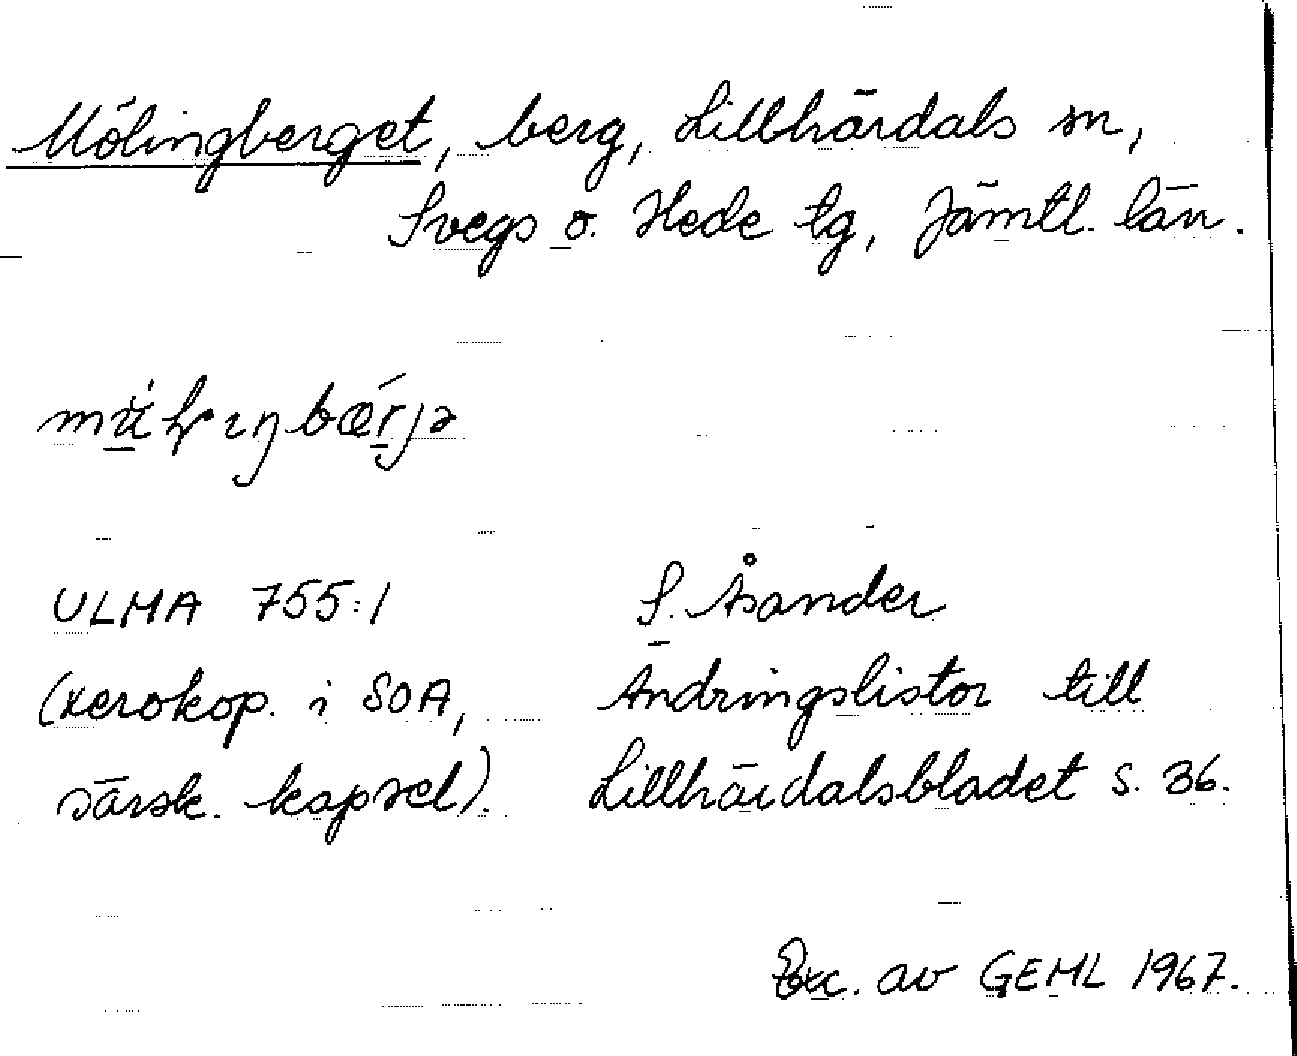 Mölingberget, berg, Lillhärdals sn,
Svegs o. Hede tg, Jämtl. län.
ULMA 755:1
S. Åsander
(xerokop. i SOA,
Ändringslistor till
särsk. kapsel).
Lillhärdalsbladet s. 36.
Exc. av GEML 1967.